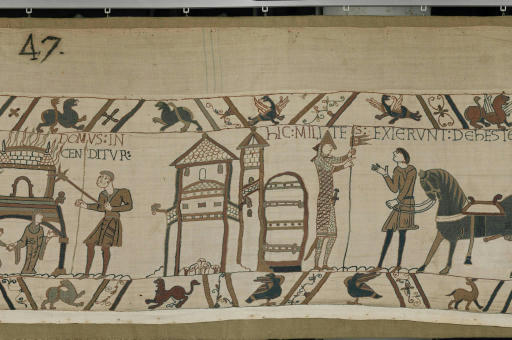 47.
DOMVS: IN
CENDITVR:
HIC: MILITES: EXIERVNT: DE hESTE